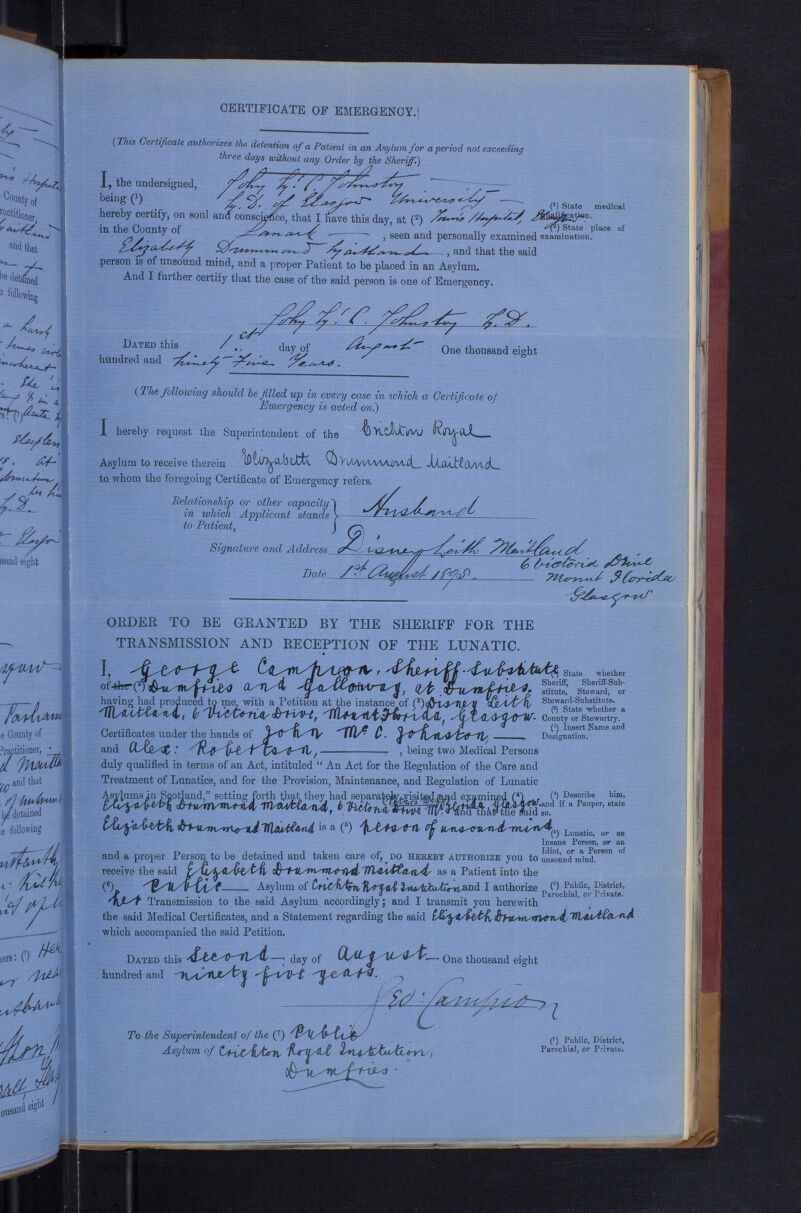 CERTIFICATE OF EMERGENCY.
(This Certificate authorizes the detention of a Patient in an Asylum for a period not exceeding
three days without any Order by the Sheriff.)
I, the undersigned, John Mc. C. Johnston
being (¹) M.D. of Glasgow University
(¹) State medical
qualification.
hereby certify, on soul and conscience, that I have this day, at (²) Towns Hospital, Glasgow
(²) State place of
examination.
in the County of Lanark, seen and personally examined
Elizabeth Drummond Maitland, and that the said
person is of unsound mind, and a proper Patient to be placed in an Asylum.
And I further certify that the case of the said person is one of Emergency.
John Mc. C. Johnston M.D.
DATED this 1st day of August One thousand eight
hundred and ninety five Years.
(The following should be filled up in every case in which a Certificate of
Emergency is acted on.)
I hereby request the Superintendent of the Crichton Royal
Asylum to receive therein Elizabeth Drummond Maitland
to whom the foregoing Certificate of Emergency refers.
Relationship or other capacity
in which Applicant stands
to Patient,
Husband
Signature and Address Disney Leith Maitland
6 Victoria Drive
Date 1st August 1895.
Mount Florida
Glasgow
ORDER TO BE GRANTED BY THE SHERIFF FOR THE
TRANSMISSION AND RECEPTION OF THE LUNATIC.
I, George Campion, Sheriff-Substitute
of the (²) Dumfries and Galloway, at Dumfries
(¹) State whether
Sheriff, Sheriff-Sub-
stitute, Steward, or
Steward-Substitute.
(²) State whether a
County or Stewartry.
(³) Insert Name and
Designation.
having had produced to me, with a Petition at the instance of (³) Disney Leith
Maitland, 6 Victoria Drive, Mount Florida, Glasgow.
Certificates under the hands of John Mc C. Johnston,
and Alex: Robertson, , being two Medical Persons
duly qualified in terms of an Act, intituled "An Act for the Regulation of the Care and
Treatment of Lunatics, and for the Provision, Maintenance, and Regulation of Lunatic
Asylums in Scotland," setting forth that they had separately visited and examined (⁴)
Elizabeth Drummond Maitland, 6 Victoria Drive Mt. Florida, Glasgow and that the said
(⁴) Describe him,
and if a Pauper, state
so.
Elizabeth Drummond Maitland is a (⁵) person of unsound mind
(⁵) Lunatic, or an
Insane Person, or an
Idiot, or a Person of
unsound mind.
and a proper Person to be detained and taken care of, DO HEREBY AUTHORIZE you to
receive the said Elizabeth Drummond Maitland as a Patient into the
(⁶) Public Asylum of Crichton Royal Institution and I authorize
(⁶) Public, District,
Parochial, or Private.
her Transmission to the said Asylum accordingly; and I transmit you herewith
the said Medical Certificates, and a Statement regarding the said Elizabeth Drummond Maitland
which accompanied the said Petition.
DATED this Second day of August One thousand eight
hundred and ninety five years.
Geo: Campion
To the Superintendent of the (⁷) Public
Asylum of Crichton Royal Institution,
Dumfries.
(⁷) Public, District,
Parochial, or Private.